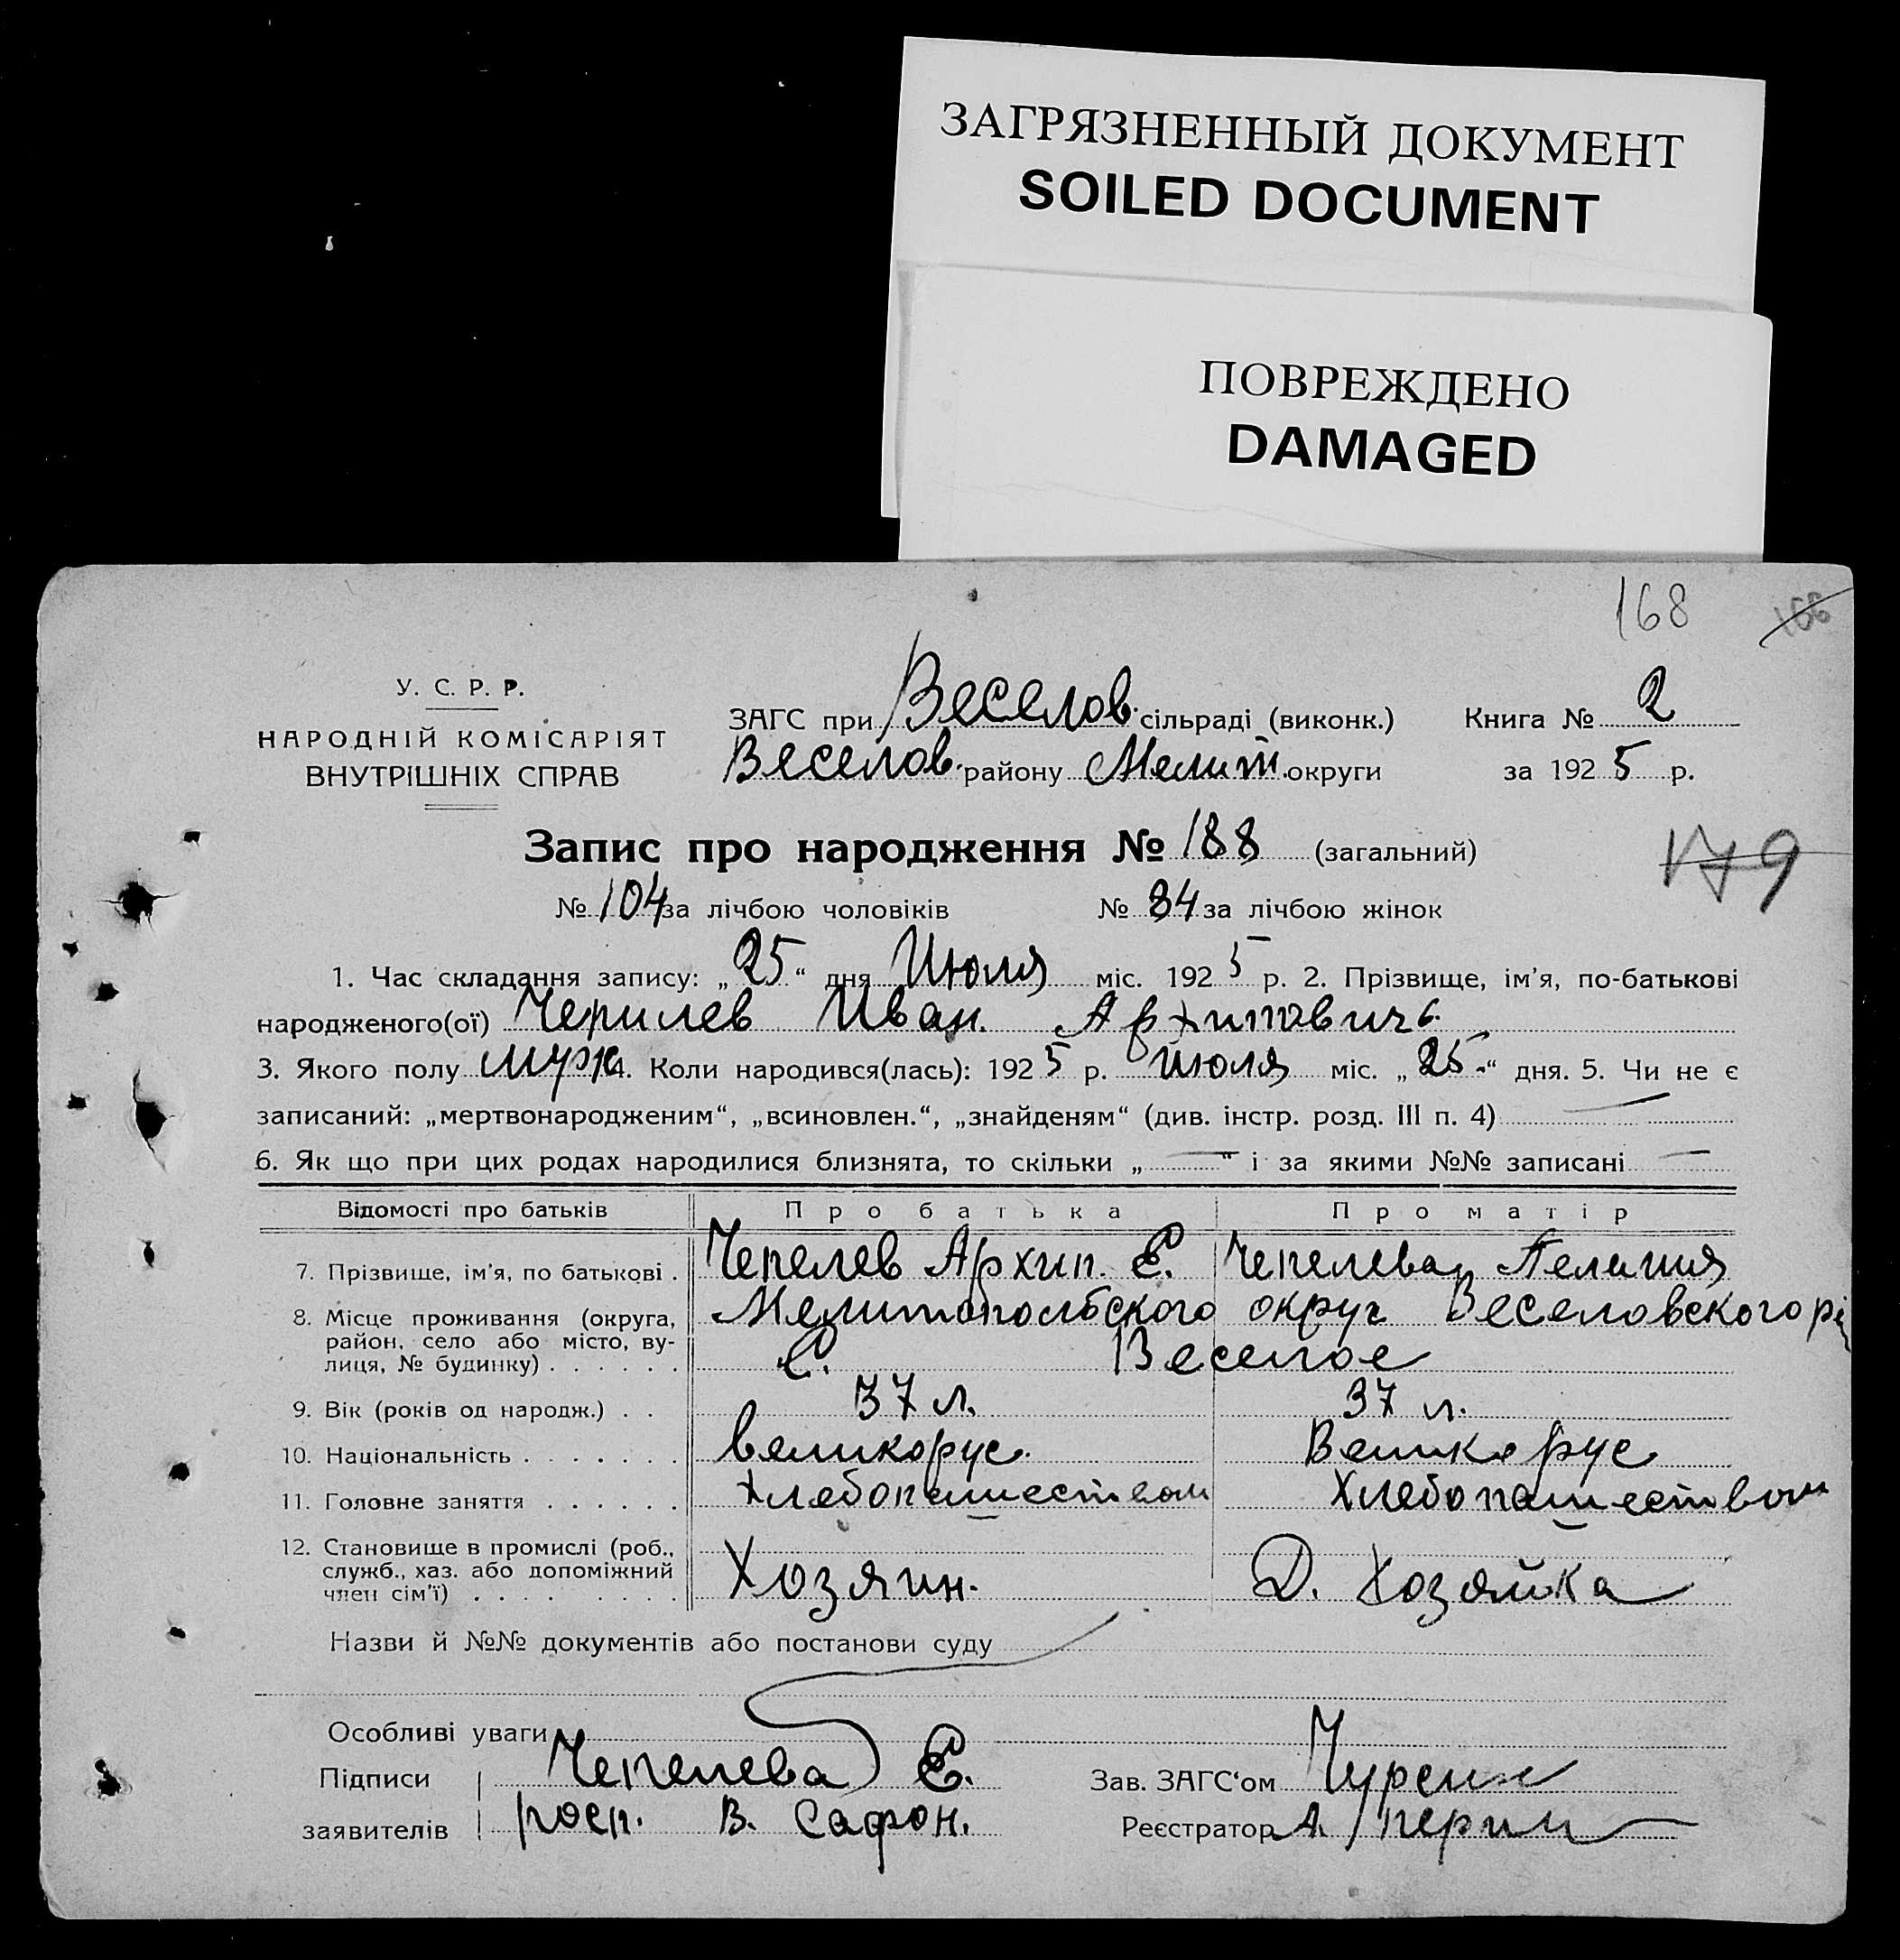 ЗАГРЯЗНЕННЫЙ ДОКУМЕНТ
SOILED DOCUMENT
ПОВРЕЖДЕНО
DAMAGED
168 166
У. С. Р. Р.
НАРОДНІЙ КОМІСАРІЯТ
ВНУТРІШНІХ СПРАВ
ЗАГС при Веселов. сільраді (виконк.) Книга № 2
Веселов. району Мелит. округи за 1925 р.
Запис про народження № 188 (загальний)
179
№ 104 за лічбою чоловіків № 84 за лічбою жінок
1. Час складання запису: „25“ дня Июля міс. 1925 р. 2. Прізвище, ім'я, по-батькові
народженого(ої) Чепилев Иван. Архипович
3. Якого полу муж 4. Коли народився(лась): 1925 р. июля міс. „25.“ дня. 5. Чи не є
записаний: „мертвонародженим“, „всиновлен.“, „знайденям“ (див. інстр. розд. III п. 4)
6. Як що при цих родах народилися близнята, то скільки „ “ і за якими №№ записані
Відомості про батьків Про батька Про матір
7. Прізвище, ім'я, по батькові . Чепелев Архип. Е. Чепелева Пелагия
8. Місце проживання (округа, район, село або місто, вулиця, № будинку) . . . . . . Мелитопольского округ Веселовского
С. Веселое
9. Вік (років од народж.) . . 37 л. 37 л.
10. Національність . . . . . . . великорус. Великорус
11. Головне заняття . . . . . . Хлебопашеством Хлебопашеством
12. Становище в промислі (роб., служб., хаз. або допоміжний член сім'ї) . . . . . . . . Хозяин. Д. Хозяйка
Назви й №№ документів або постанови суду
Особливі уваги
Підписи Чепелева Е. Зав. ЗАГС'ом
заявителів росп. В. Сафон. Реєстратор А.